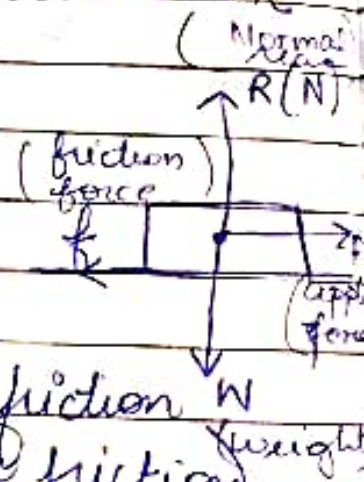 (Normal
R(N)
(friction
force)
f
(app
force
friction W
(weight
friction